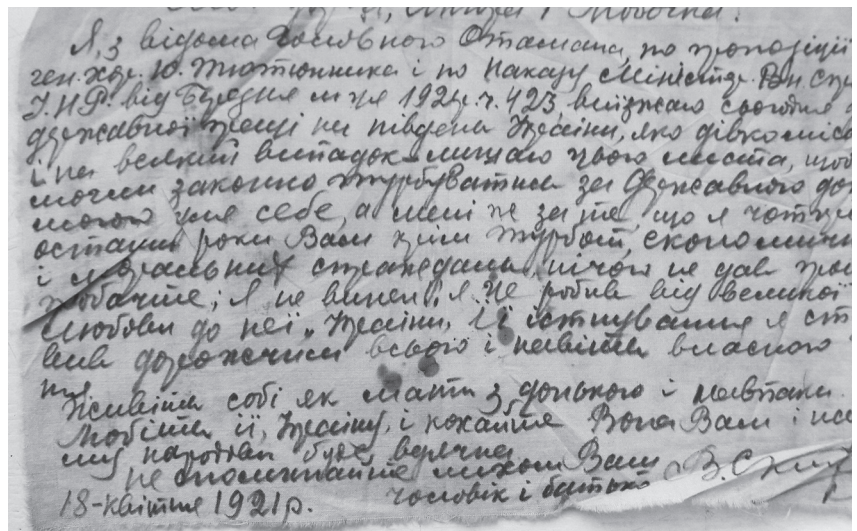 Я, з відома Головного Отамана, по пропозіції
ген. хор. Ю. Тютюнника і по наказу Міністр. Вн. Спр
У.Н.Р. від Березня м-ця 1921 р. ч. 423, виїзжаю сьогодня
державної праці на південь України, яко
і на всякий випадок лишаю цього листа, щоб
могли законно турбуватись за Державною
могою для себе, а мені же за те, що я
останні роки Вам крім турбот, економичн
і моральних страждань, нічого не дав
пробачте; я не винен! Я це робив від великої
любови до неї, України, її істнування я
вив дорожчим всього і навіть власного
ття
Живіть собі як мати з донькою і навпаки.
Любіть її, Україну, і кохайте Вона Вам і
му народови буде вдячна
не споминайте лихом Ваш
18-квітня 1921 р. чоловік і батько В.